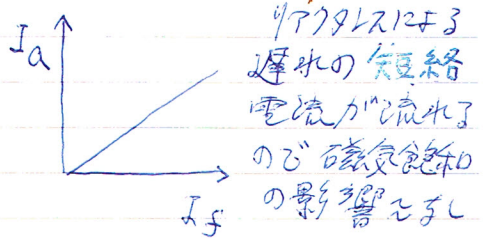 Ia
If
リアクタンスによる
遅れの短絡
電流が流れる
ので磁気飽和
の影響なし